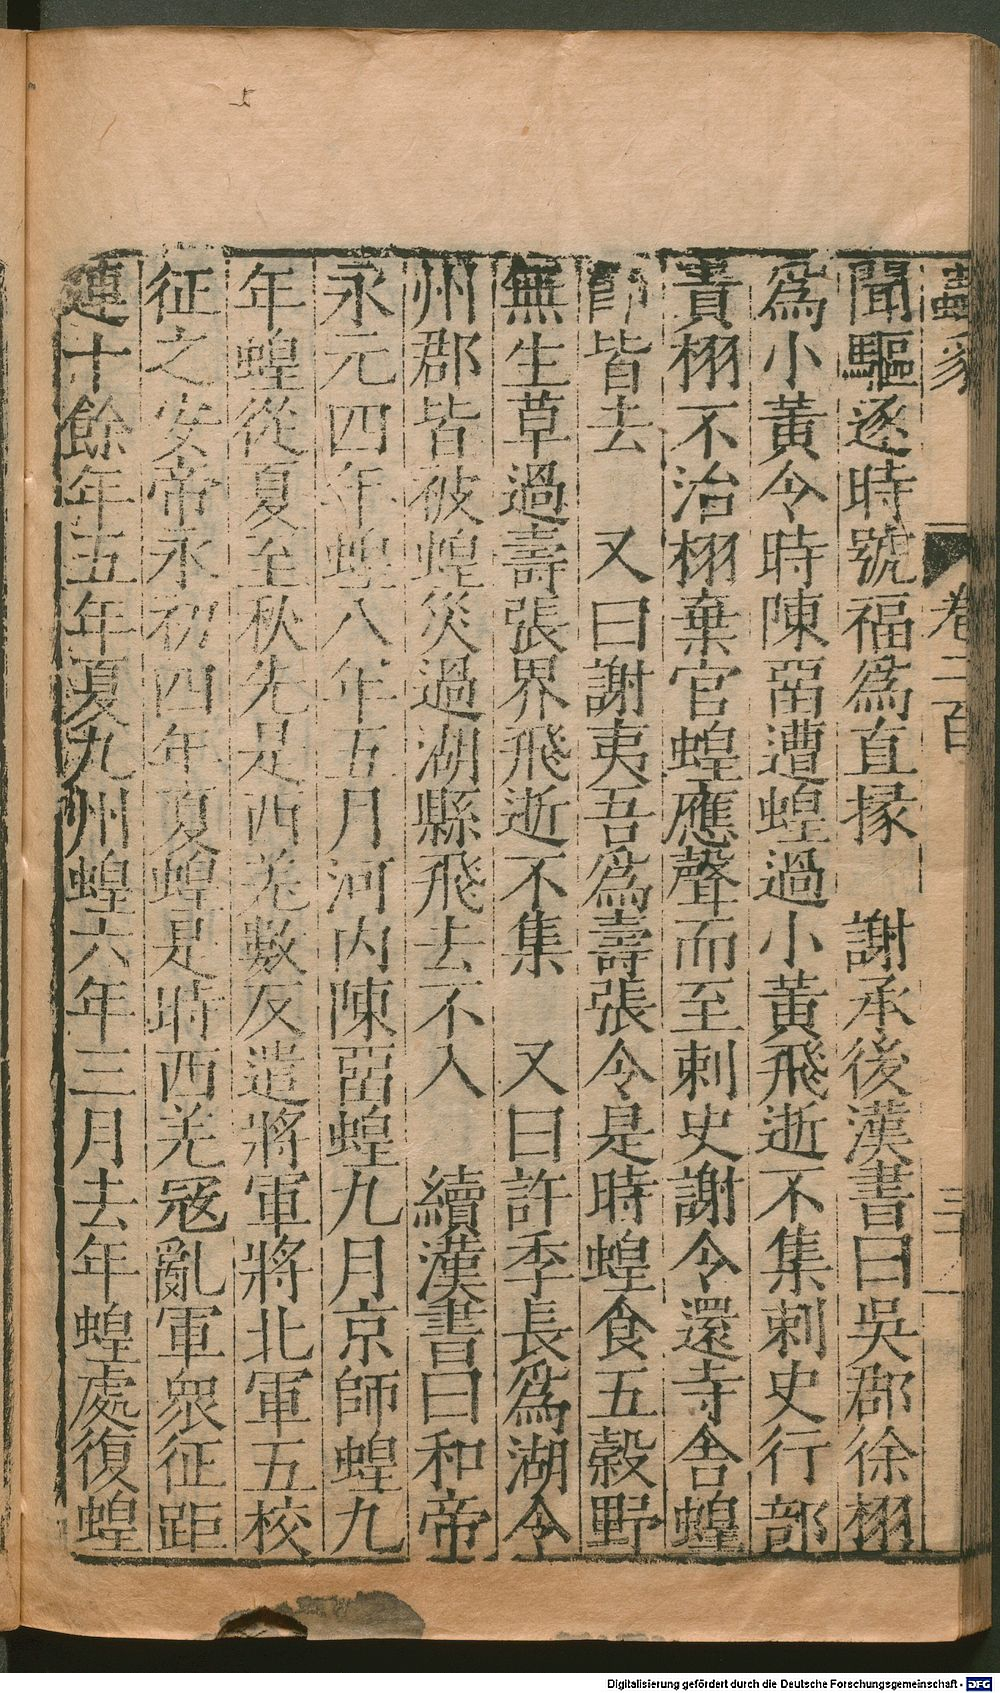 蟲豸
卷一百
聞驅逐時號福爲直掾　謝承後漢書曰吳郡徐栩
爲小黃令時陳畱遭蝗過小黃飛逝不集刺史行部
責栩不治栩棄官蝗應聲而至刺史謝令還寺舍蝗
即皆去　又曰謝夷吾爲壽張令是時蝗食五穀野
無生草過壽張界飛逝不集　又曰許季長爲湖令
州郡皆被蝗災過湖縣飛去不入　續漢書曰和帝
永元四年蝗八年五月河內陳畱蝗九月京師蝗九
年蝗從夏至秋先是西羌數反遣將軍將北軍五校
征之安帝永初四年夏蝗是時西羌寇亂軍衆征距
連十餘年五年夏九州蝗六年三月去年蝗處復蝗
Digitalisierung gefördert durch die Deutsche Forschungsgemeinschaft - DFG